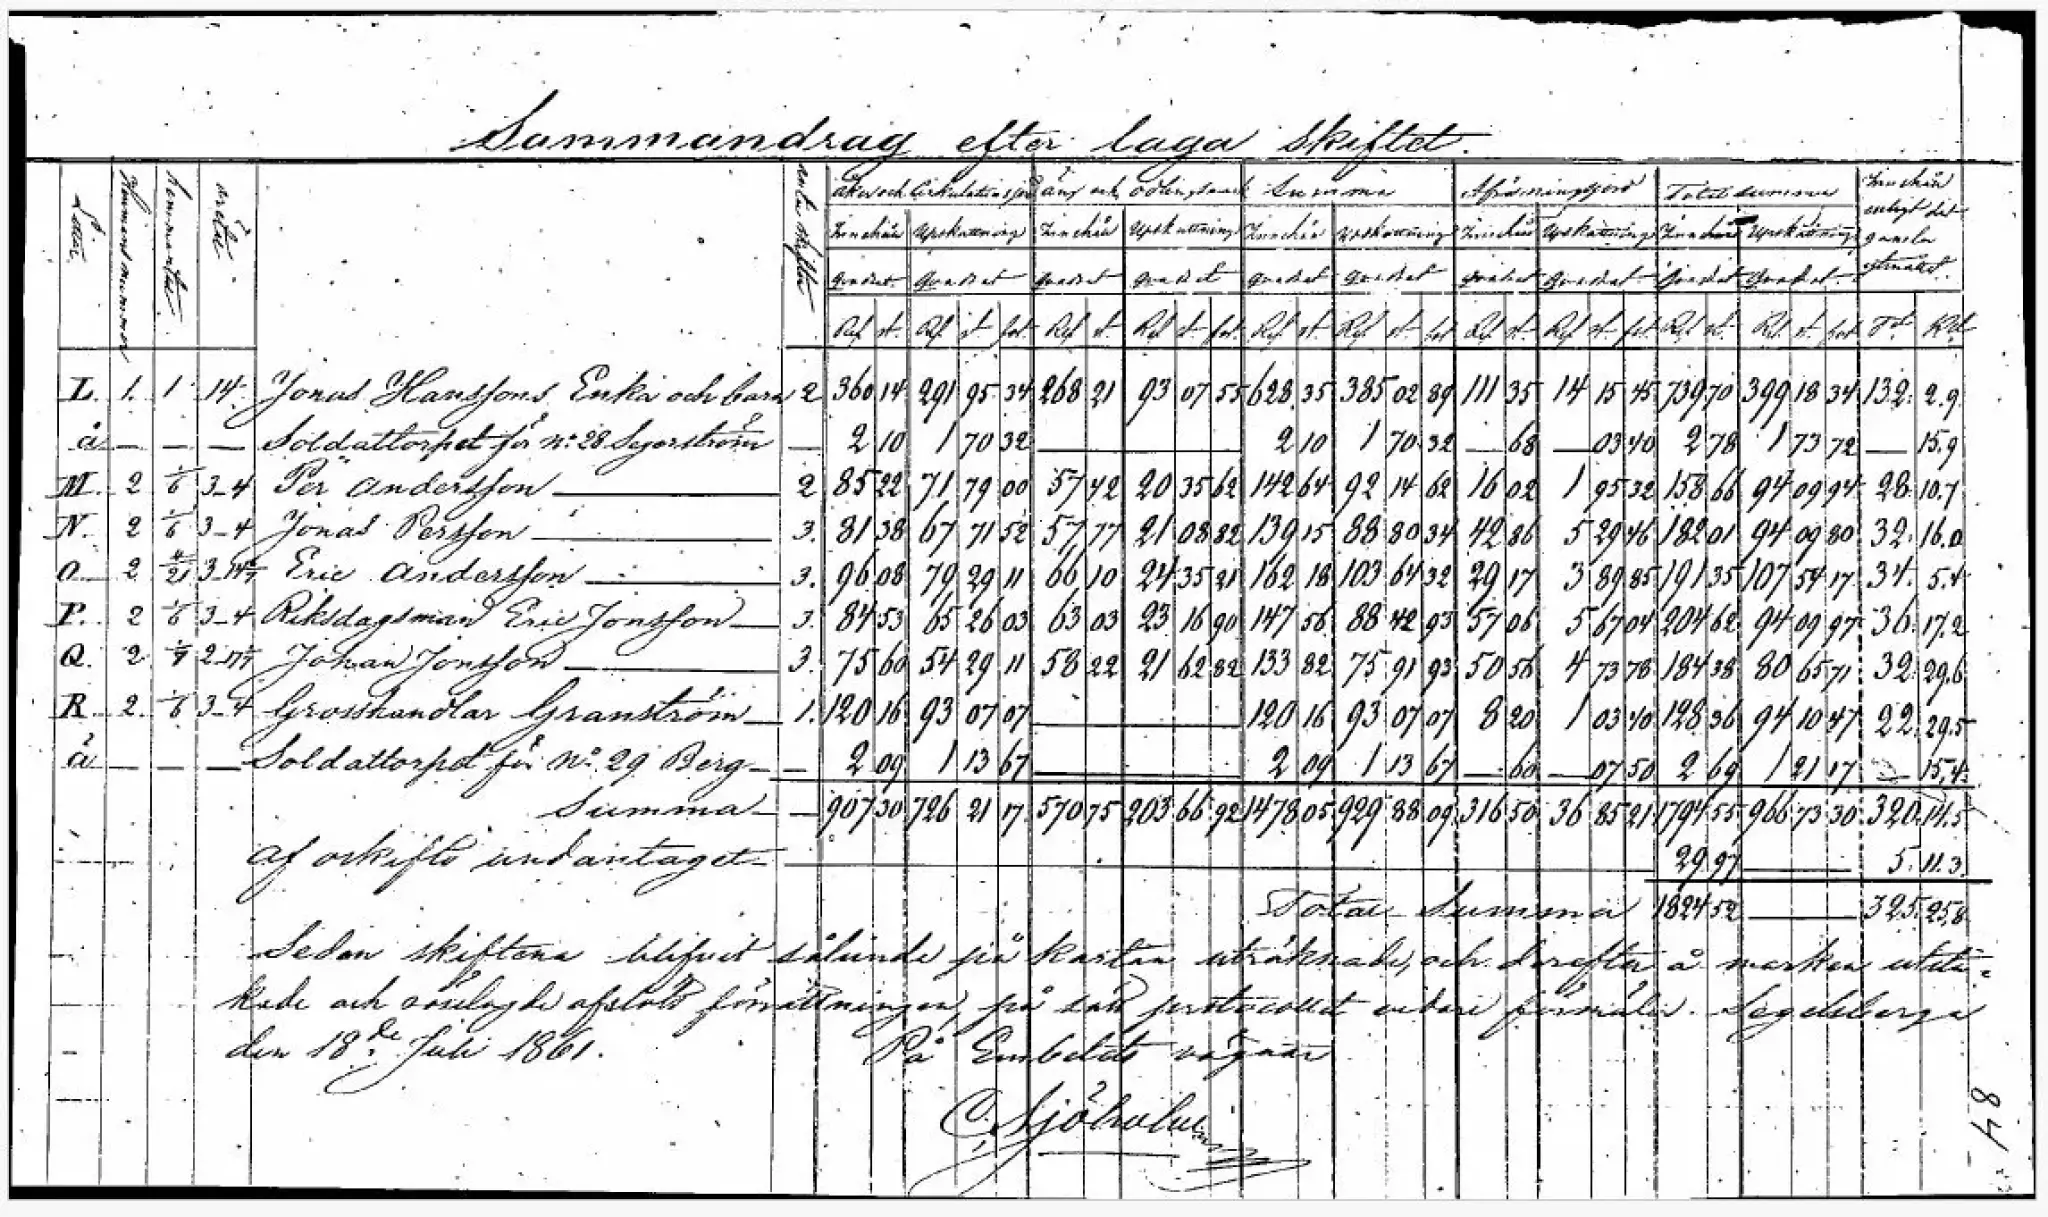 Sammandrag efter laga skiftet.
Litter Hemmansnummer hemmantal öretal antal skiften åker och Cirkulationsjord äng och odlingsmark Summa Afrösningsjord Total summa Innehåll enligt det gamla
Innehåll Uppskattning Innehåll Uppskattning Innehåll Uppskattning Innehåll Uppskattning Innehåll Uppskattning
quadrat quadrat quadrat quadrat quadrat quadrat quadrat quadrat quadrat quadrat
Ref st. Ref st fot Ref st. Ref st fot Ref st. Ref st. fot Ref st. Ref st. fot Ref st. Ref st fot Td. Kd.
L. 1. 1 14 Jonas Hanssons Enka och barn 2 360 14 291 95 34 268 21 93 07 55 628 35 385 02 89 111 35 14 15 45 739 70 399 18 34 132. 2.9
å — — — Soldattorpet för No. 28 Segerström — 2 10 1 70 32 — 2 10 1 70 32 — 68 — 03 40 2 78 1 73 72 — 15.9
M. 2 1/6 3-4 Per Andersson 2 85 22 71 79 00 57 42 20 35 62 142 64 92 14 62 16 02 1 95 32 158 66 94 09 94 28. 10.7
N. 2 1/6 3-4 Jonas Persson 3. 81 38 67 71 52 57 77 21 08 82 139 15 88 80 34 42 86 5 29 46 182 01 94 09 80 32. 16.0
O 2 4/21 3 Eric Andersson 3. 96 08 79 29 11 66 10 24 35 21 162 18 103 64 32 29 17 3 89 85 191 35 107 54 17 34. 5.4
P. 2 1/6 3-4 Riksdagsman Eric Jonsson 3. 84 53 65 26 03 63 03 23 16 90 147 56 88 42 93 57 06 5 67 04 204 62 94 09 97 36. 17.2
Q. 2 1/7 2 Johan Jonsson 3. 75 60 54 29 11 58 22 21 62 82 133 82 75 91 93 50 56 4 73 78 184 38 80 65 71 32. 29.6
R. 2. 1/6 3-4 Grosshandlar Granström 1. 120 16 93 07 07 — 120 16 93 07 07 8 20 1 03 40 128 36 94 10 47 22. 29.5
å — — — Soldattorpet för No. 29 Berg — 2 09 1 13 67 — 2 09 1 13 67 — 60 — 07 50 2 69 1 21 17 — 15.4
Summa — 907 30 726 21 17 570 75 203 66 92 1478 05 929 88 09 316 50 36 85 21 1794 55 966 73 30 320 14.5
af oskifto undantaget — 29 97 — 5. 11.3
Total Summa 1824 52 — 325. 25.8
Sedan skiftena blifvit sålunda på kartan uträknade, och derefter å marken utsta-
kade och rörlagde afslöts förrättningen, på sätt protocollet vidare förmäler. Segelsberga
den 18de Juli 1861. På Embetets vägnar
C. Sjöholm
84